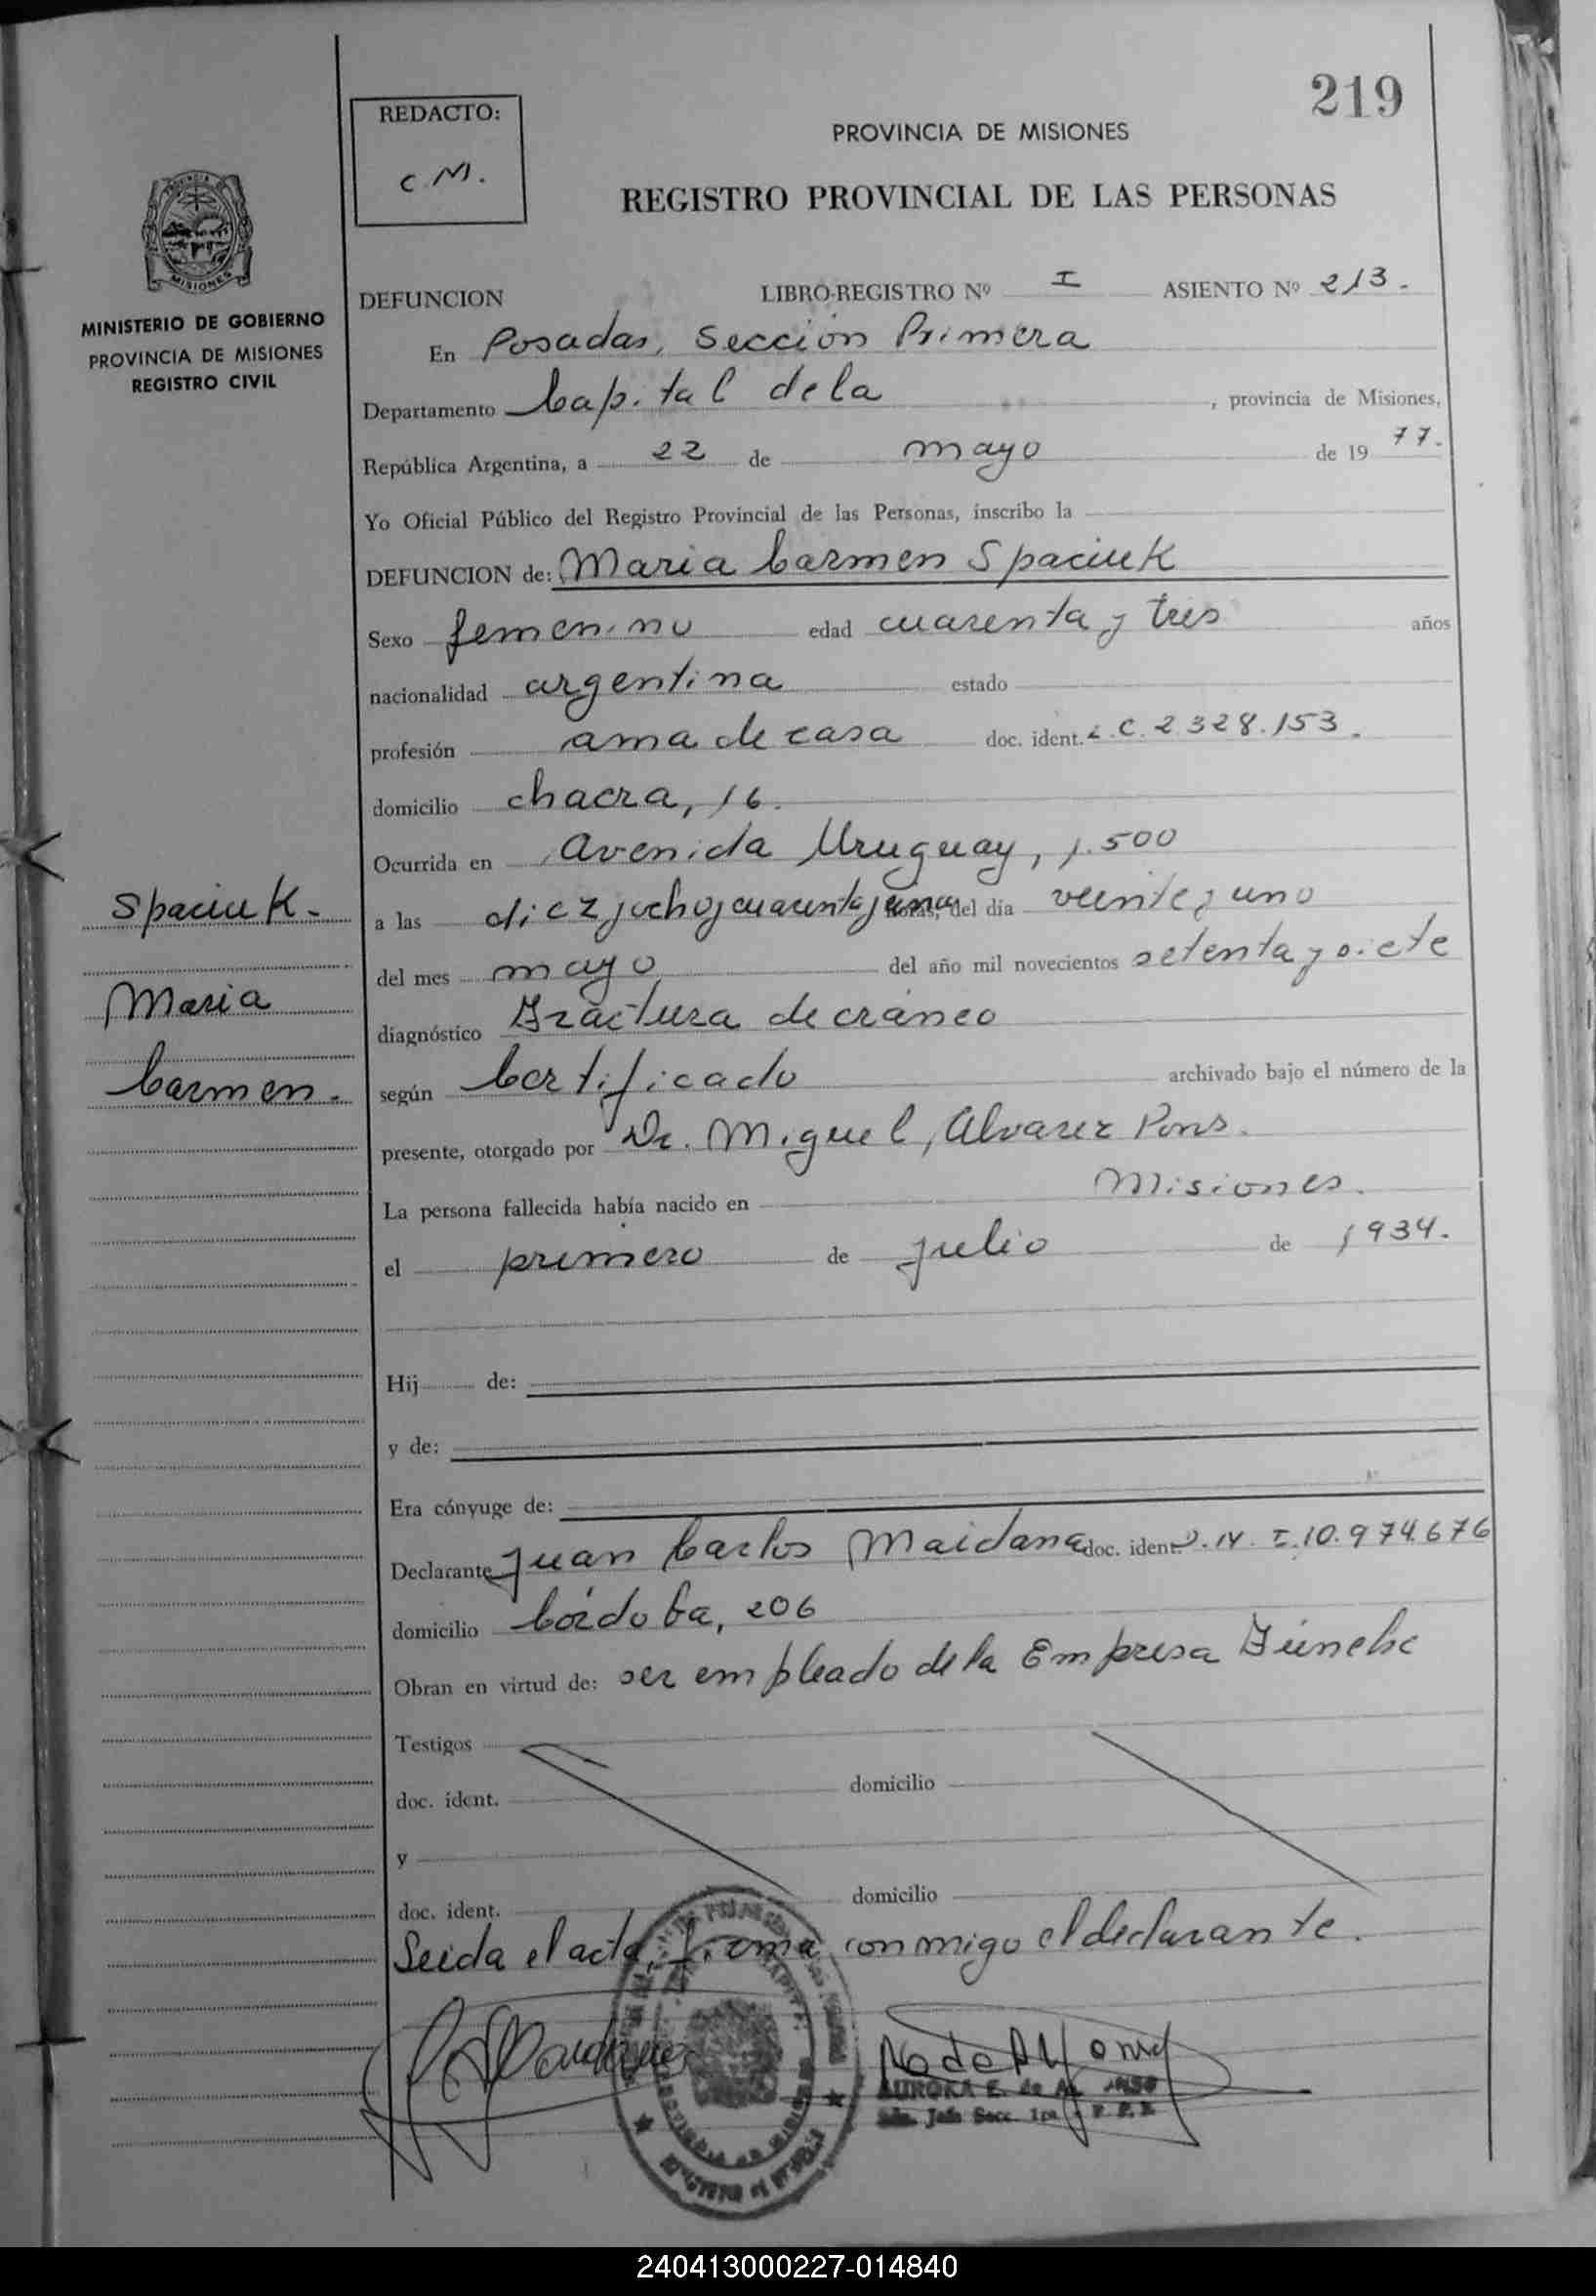 219
REDACTO:
C.M.
PROVINCIA DE MISIONES
REGISTRO PROVINCIAL DE LAS PERSONAS
MISIONES
MINISTERIO DE GOBIERNO
PROVINCIA DE MISIONES
REGISTRO CIVIL
DEFUNCION LIBRO-REGISTRO Nº I ASIENTO Nº 213.
En Posadas, Sección Primera
Departamento Capital de la , provincia de Misiones,
República Argentina, a 22 de mayo de 19 77.
Yo Oficial Público del Registro Provincial de las Personas, inscribo la
DEFUNCION de: Maria Carmen Spaciuk
Sexo femenino edad cuarenta y tres años
nacionalidad argentina estado
profesión ama de casa doc. ident. L.C. 2.328.153.
domicilio chacra, 16.
Ocurrida en Avenida Uruguay, 1.500
Spaciuk.
a las diez y ocho y cuarenta y una horas, del día veinte y uno
del mes mayo del año mil novecientos setenta y siete
Maria
diagnóstico Fractura de cráneo
Carmen.
según Certificado archivado bajo el número de la
presente, otorgado por Dr. Miguel, Alvarez Pons.
La persona fallecida había nacido en Misiones.
el primero de julio de 1934.
Hij de:
y de:
Era cónyuge de:
Declarante Juan Carlos Maidana doc. ident. D.N.I. 10.974.676
domicilio Córdoba, 206
Obran en virtud de: ser empleado de la Empresa Fúnebre
Testigos
doc. ident. domicilio
y
doc. ident. domicilio
Leida el acta, firma conmigo el declarante.
AURORA E. de
Jefe Secc. 1ra
240413000227-014840